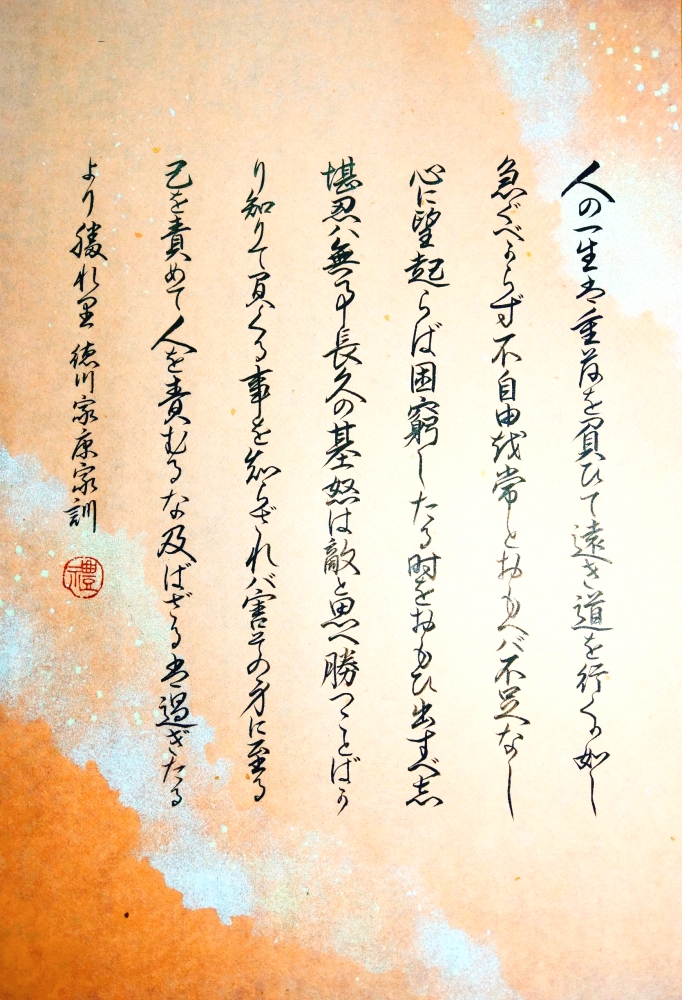 人の一生は重荷を負ひて遠き道を行くか如し
急ぐべからず不自由越常とおもへバ不足なし
心に望起らば困窮したる時をおもひ出すべ志
堪忍ハ無事長久の基怒は敵と思へ勝つことばか
り知りて負くる事を知らざれバ害その身に至る
己を責めて人を責むるな及ばざるは過ぎたる
より勝れ里 徳川家康家訓
禮